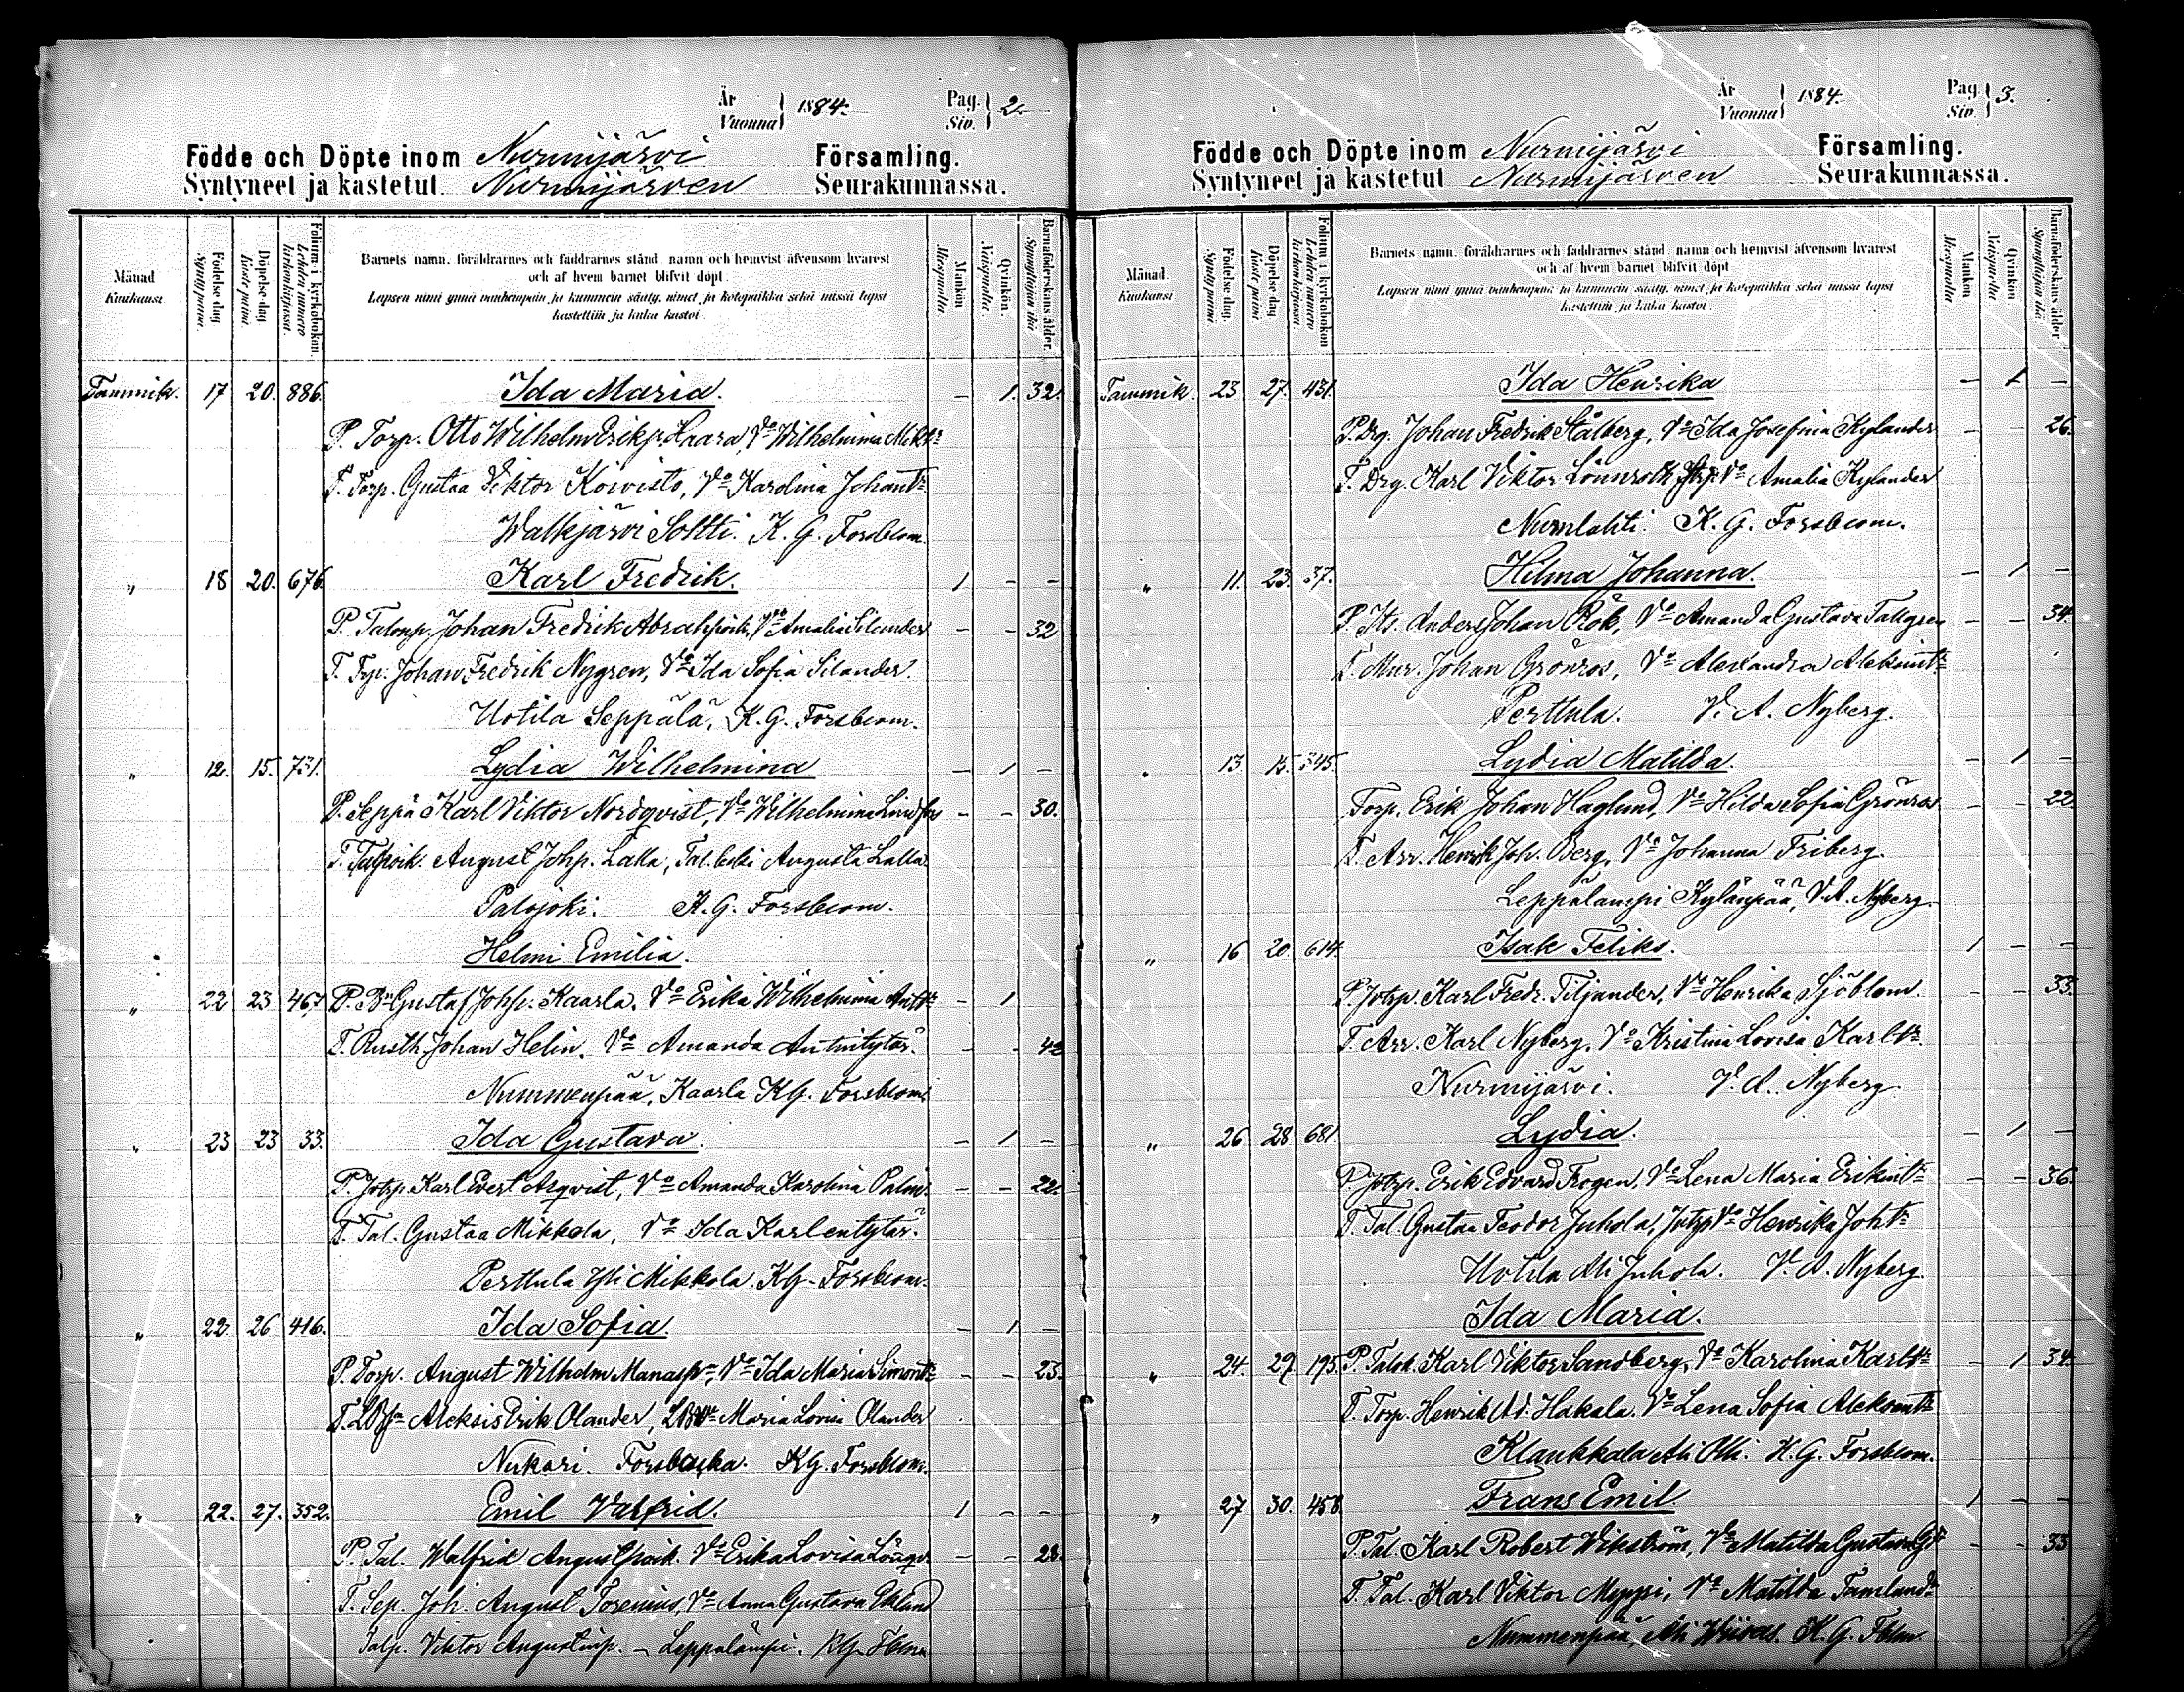 År
Vuonna 1884.
Pag.
Siv. 2.
Födde och Döpte inom Nurmijärvi Församling.
Syntyneet ja kastetut Nurmijärven Seurakunnassa.
Månad
Kuukausi
Födelse dag
Synty päivä.
Döpelse dag
Kaste päivä
Folium i kyrkoboken.
Lehden numero kirkonkirjassa.
Barnets namn, föräldrarnes och faddrarnes stånd, namn och hemvist äfvensom hvarest
och af hvem barnet blifvit döpt.
Lapsen nimi ynnä vanhempain ja kummein sääty, nimet ja kotopaikka sekä missä lapsi
kastettiin ja kuka kastoi.
Mankön
Miespuolia
Qvinkön.
Naispuolia.
Barnaföderskans ålder.
Synnyttäjän ikä
Tammik. 17 20. 886. Ida Maria. – 1. 32.
P. Torp. Otto Wilhelm Erikp. Haara, Vo Wilhelmina Mikt:
T. Torp. Gustaa Viktor Koivisto, Vo Karolina Johant:
Walkjärvi Soltti. K. G. Forsblom.
" 18 20. 676. Karl Fredrik. 1 – –
P. Talonp. Johan Fredrik Abrah.poik, Vo Amalia Silander – – 32
T. Trp. Johan Fredrik Nygren, Vo Ida Sofia Silander.
Uotila Seppälä, K. G. Forsblom.
" 12. 15. 731. Lydia Wilhelmina – 1 –
P. Seppä Karl Viktor Nordqvist, Vo Wilhelmina Lindfors – – 30.
T. August Johp. Lalla, Tal. leski Augusta Lalla
Palojoki. K. G. Forsblom.
Helmi Emilia.
" 22 23 467. P. Gustaf Johp. Kaarla, Vo Erika Wilhelmina Antt: – 1
T. Rusth. Johan Helin, Vo Amanda Antintytär. – – 42
Nummenpää, Kaarla KG. Forsblom.
" 23 23 33. Ida Gustava. – 1 –
P. Jotrp. Karl Evert Arqvist, Vo Amanda Karolina Palin. – – 22.
T. Tal. Gustaa Mikkola, Vo Ida Karlentytär.
Perttula Yli Mikkola. KG. Forsblom.
" 22. 26 416. Ida Sofia. – 1 –
P. Torp. August Wilhelm Manasp:, Vo Ida Maria Simont: – – 23.
T. Aleksis Erik Olander, Maria Lovisa Olander
Nukari. Forsbacka. KG. Forsblom.
" 22. 27. 352. Emil Valfrid. 1 – –
P. Tal. Walfrid August poik. Vo Erika Lovisa Lönqv. – – 28.
T. Sep. Joh. August Forenius, Vo Anna Gustava Eklund
Talp. Viktor Augustinp. – Leppälampi. KG. Fblm
År
Vuonna 1884.
Pag.
Siv. 3.
Födde och Döpte inom Nurmijärvi Församling.
Syntyneet ja kastetut Nurmijärven Seurakunnassa.
Månad
Kuukausi
Födelse dag.
Synty päivä
Döpelse dag
Kaste päivä
Folium i kyrkoboken
Lehden numero kirkonkirjassa.
Barnets namn, föräldrarnes och faddrarnes stånd, namn och hemvist äfvensom hvarest
och af hvem barnet blifvit döpt
Lapsen nimi ynnä vanhempain ja kummein sääty, nimet ja kotopaikka sekä missä lapsi
kastettiin ja kuka kastoi.
Mankön
Miespuolia
Qvinkön
Naispuolia
Barnaföderskans ålder
Synnyttäjän ikä
Tammik. 23 27. 431. Ida Henrika – 1 –
P. Drg. Johan Fredrik Stålberg, Vo Ida Josefina Kylander – – 26.
T. Drg. Karl Viktor Lönnroth, Vo Amalia Kylander
Numlahti. K. G. Forsblom.
" 11. 23. 37. Hilma Johanna. – 1 –
P. Its. Anders Johan Rök, Vo Amanda Gustava Tallgren – – 34.
T. Mur. Johan Grönros, Vo Alexandra Aleksint:
Perttula. V. A. Nyberg.
" 13 15. 345. Lydia Matilda. – 1 –
Torp. Erik Johan Haglund, Vo Hilda Sofia Grönros – – 22.
T. Arr. Henrik Joh. Berg, Vo Johanna Friberg.
Leppälampi Kylänpää, V. A. Nyberg.
" 16 20. 614. Isak Feliks. 1 – –
P. Jotrp. Karl Fredr. Tiljander, Vo Henrika Sjöblom. – – 33.
T. Arr. Karl Nyberg, Vo Kristina Lovisa Karlt:
Nurmijärvi. V. A. Nyberg.
" 26 28 681. Lydia. – 1 –
P. Jotrp. Erik Edvard Frogen, Vo Lena Maria Erikint: – – 36.
T. Tal. Gustaa Teodor Juhola, Jotrp Vo Henrika Joht:
Uotila Ali Juhola. V. A. Nyberg.
Ida Maria.
" 24. 29 195. P. Karl Viktor Sandberg, Vo Karolina Karlt: – 1 34.
T. Torp. Henrik Ad. Hakala. Vo Lena Sofia Aleksint:
Klaukkala Ali Olli. K. G. Forsblom.
" 27 30. 458. Frans Emil. 1 – –
P. Tal. Karl Robert Wikström, Vo Matilda – – 33
T. Tal. Karl Viktor Myppi, Vo Matilda
Nummenpää, Ali K. G. Fblm.